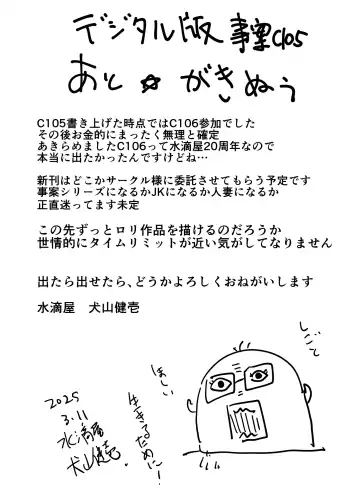 デジタル版 事案C105
あと☆がきぬぅ
C105書き上げた時点ではC106参加でした
その後お金的にまったく無理と確定
あきらめましたC106って水滴屋20周年なので
本当に出たかったんですけどね…
新刊はどこかサークル様に委託させてもらう予定です
事案シリーズになるかJKになるか人妻になるか
正直迷ってます未定
この先ずっとロリ作品を描けるのだろうか
世情的にタイムリミットが近い気がしてなりません
出たら出せたら、どうかよろしくおねがいします
水滴屋　犬山健壱
しごと
ほしい
生きるために!
2025
3.11
水滴屋
犬山健壱.